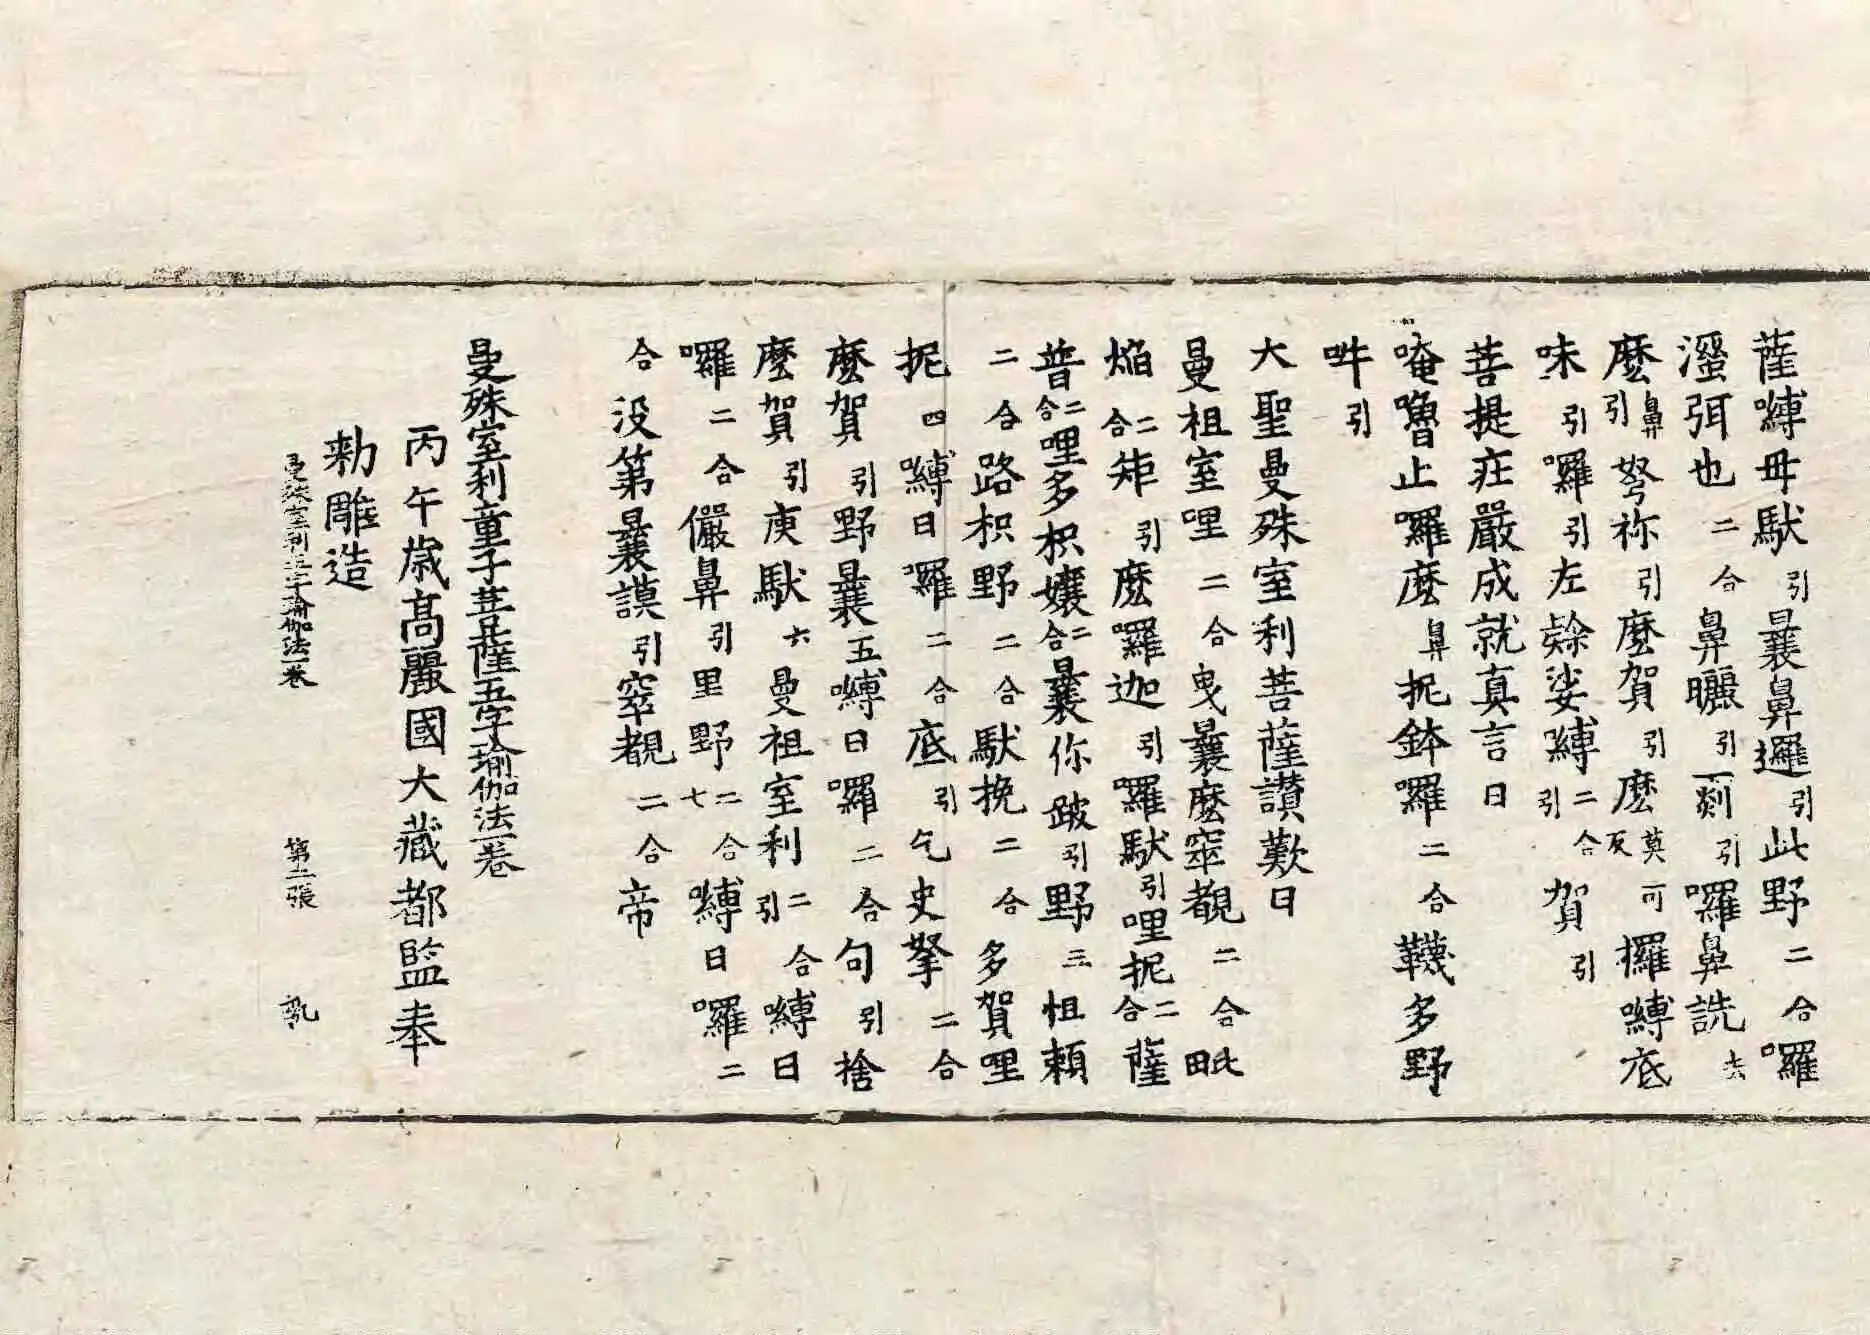 薩嚩毋馱引曩鼻邏引此野二合囉
濕弭也二合鼻矖引剡引囉鼻詵去
麽鼻引弩祢引麽賀引麽莫可反攞嚩底
味引囉引左賖娑嚩二合引賀引
菩提莊嚴成就真言曰
唵嚕止囉麽鼻抳鉢囉二合韈多野
吽引
大聖曼殊室利菩薩讚歎曰
曼祖室哩二合曳曩麽窣覩二合毗
焔二合矩引麽囉迦引囉馱引哩抳二合薩
普二合哩多枳孃二合曩你跛引野三怛賴
二合路枳野二合馱挽二合多賀哩
抳四嚩日囉二合底引乞史拏二合
麽賀引野曩五嚩日囉二合句引捨
麽賀引庾馱六曼祖室利二合引嚩日
囉二合儼鼻引里野二合七嚩日囉二
合没第曩謨引窣覩二合帝
曼殊室利童子菩薩五字瑜伽法一卷
丙午歳高麗國大藏都監奉
勑雕造
曼殊室利五字瑜伽法一卷 第五張